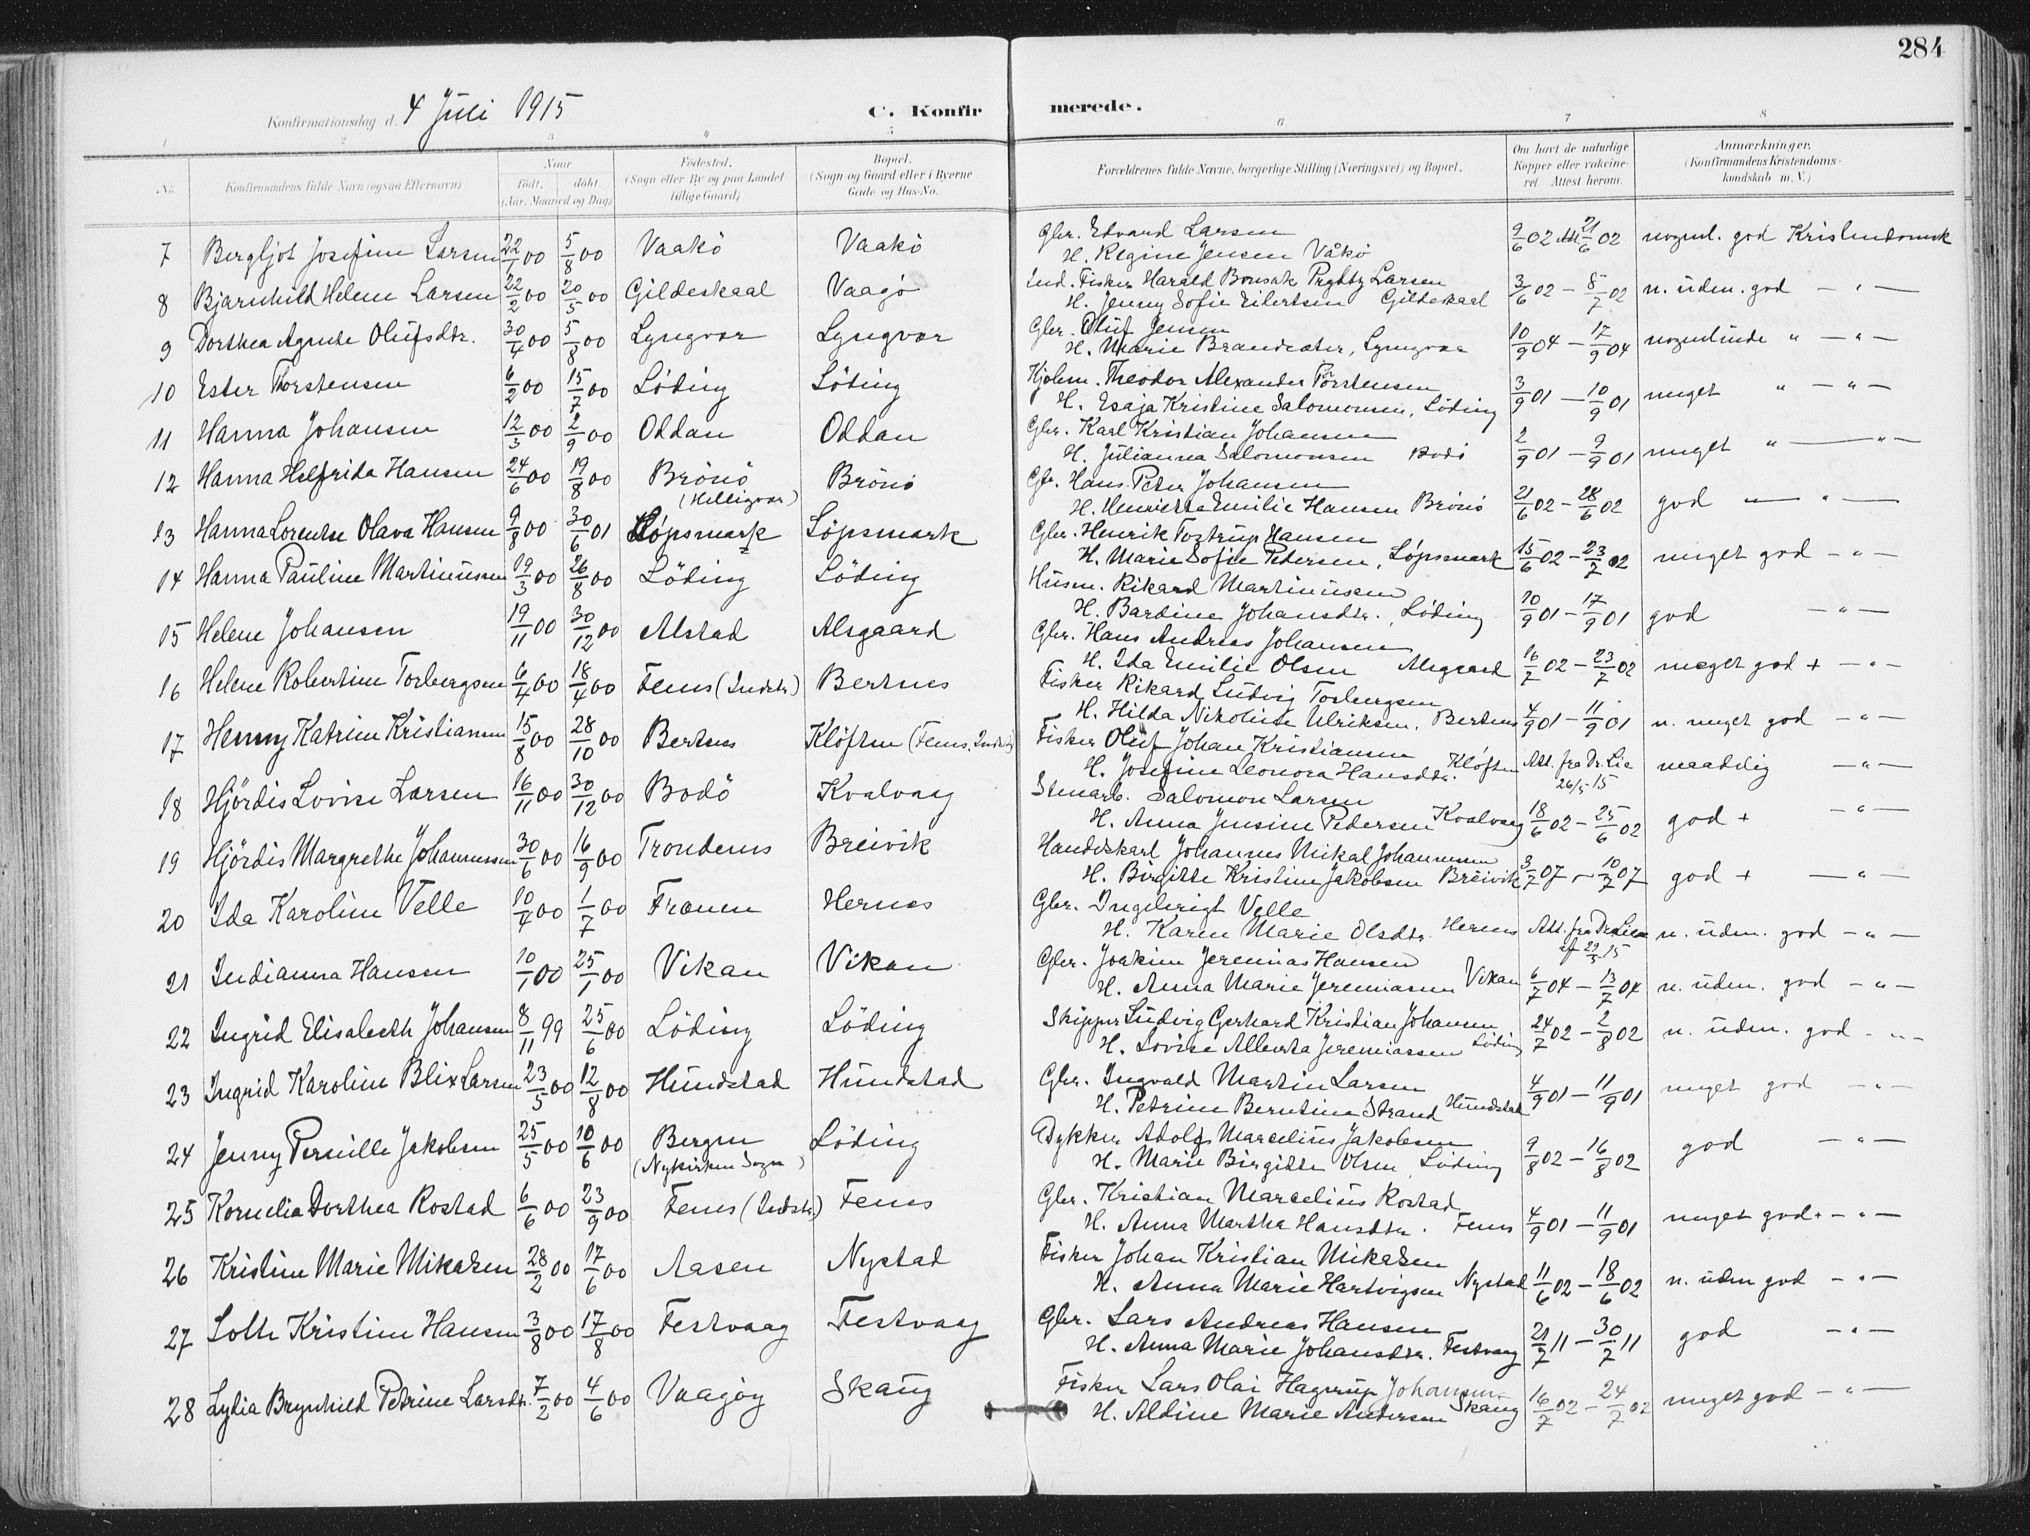 284
Konfirmationsdag d. 4 Juli 1915
C. Konfirmerede.
1 2 3 4 5 6 7 8
No. Konfirmandens fulde Navn (ogsaa Efternavn) Naar født. døbt. (Aar, Maaned og Dag) Fødested. (Sogn eller By og paa Landet tillige Gaard) Bopæl. (Sogn og Gaard eller i Byerne Gade og Hus-No. Forældrenes fulde Navne, borgerlige Stilling (Næringsvei) og Bopæl. Om havt de naturlige Kopper eller vakcineret Attest herom. Anmærkninger. (Konfirmandens Kristendomskundskab m. V.)
7 Bergljot Josefine Larsen 22/1 00 5/8 00 Vaakø Vaakø Gbr. Edvard Larsen 9/6 02 Att. 21/6 02 nogenl. god Kristendomsk
H. Regine Jensen Våkø
8 Bjarnhild Helene Larsen 22/2 00 20/5 00 Gildeskaal Vaagø Ind. Fisker Harald Larsen 3/6 02 – 8/7 02 n. uden. god – " –
H. Jenny Sofie Eilertsen Gildeskaal
9 Dorthea Agnete Olufsdtr. 30/4 00 5/8 00 Lyngvær Lyngvær Gbr. Oluf Jensen 10/9 04 – 17/9 04 nogenlunde " – " –
H. Marie Brandsæter, Lyngvær
10 Ester Torstensen 6/2 00 15/7 00 Løding Løding Kjøbm. Theodor Alexander Torstensen 3/9 01 – 10/9 01 meget " – " –
H. Esaja Kristine Salomonsen, Løding
11 Hanna Johansen 12/3 00 2/9 00 Oddan Oddan Gbr. Karl Kristian Johansen 2/9 01 – 9/9 01 meget " – " –
H. Julianna Salomonsen Bodø
12 Hanna Helfrida Hansen 24/6 00 19/8 00 Brönö (Helligvær) Brönö Gbr. Hans Peter Johansen 21/6 02 – 28/6 02 god " – " –
H. Henriette Emilie Hansen Brönö
13 Hanna Lorentse Olava Hansen 9/8 00 30/6 01 Løpsmark Løpsmark Gbr. Henrik Tostrup Hansen 15/6 02 – 23/7 02 meget god – " –
H. Marie Sofie Pedersen, Løpsmark
14 Hanna Pauline Martinussen 19/3 00 26/8 00 Löding Löding Husm. Rikard Martinussen 10/9 01 – 17/9 01 god – " –
H. Bardine Johansdtr., Løding
15 Helene Johansen 19/11 00 30/12 00 Alstad Alsgaard Gbr. Hans Andreas Johansen 16/7 02 – 23/7 02 meget god + – " –
H. Ida Emilie Olsen Alsgaard
16 Helene Robertine Torbergsen 6/4 00 18/4 00 Fenes (Indstr.) Bertnes Fisker Rikard Ludvig Torbergsen 4/9 01 – 11/9 01 n. meget god – " –
H. Hilda Nikoline Ulriksen, Bertnes
17 Henny Katrine Kristiansen 15/8 00 28/10 00 Bertnes Kløften (Fenes, Indstr) Fisker Oluf Johan Kristiansen Att. fra Dr. Lie 26/5 15 maadelig – " –
H. Josefine Leonora Hansdtr. Kløften
18 Hjördis Lovise Larsen 16/11 00 30/12 00 Bodö Kvalvaag Stenarb. Salomon Larsen 18/6 02 – 25/6 02 god + – " –
H. Anna Jensine Pedersen Kvalvaag
19 Hjördis Margrethe Johannessen 30/6 00 16/9 00 Trondenes Breivik Handelskarl Johannes Mikal Johannessen 3/7 07 – 10/7 07 god + – " –
H. Birgitte Kristine Jakobsen Breivik
20 Ida Karoline Velle 10/4 00 1/7 00 Frænen Hernes Gbr. Ingebrigt Velle Att. fra Dr. Lie af 29/5 15 n. uden. god – " –
H. Karen Marie Olsdtr. Hernes
21 Indianna Hansen 10/1 00 25/1 00 Vikan Vikan Gbr. Joakim Jeremias Hansen 6/7 04 – 13/7 04 n. uden. god – " –
H. Anna Marie Jeremiassen Vikan
22 Ingrid Elisabeth Johansen 8/11 99 25/6 00 Löding Löding Skipper Ludvig Gerhard Kristian Johansen 24/7 02 – 2/8 02 n. uden. god – " –
H. Lovise Alberta Jeremiassen Löding
23 Ingrid Karoline Blix Larsen 23/5 00 12/8 00 Hundstad Hundstad Gbr. Ingvald Martin Larsen 4/9 01 – 11/9 01 meget god – " –
H. Petrine Berntine Strand Hundstad
24 Jenny Pernille Jakobsen 25/5 00 10/6 00 Bergen (Nykirken Sogn) Löding Dykker Adolf Marselius Jakobsen 9/8 02 – 16/8 02 god – " –
H. Marie Birgitte Olsen Løding
25 Kornelia Dorthea Rostad 6/6 00 23/9 00 Fenes (Indstr.) Fenes Gbr. Kristian Marselius Rostad 4/9 01 – 11/9 01 meget god + – " –
H. Anna Martha Hansdtr. Fenes
26 Kristine Marie Mikalsen 28/2 00 17/6 00 Aasen Nystad Fisker Johan Kristian Mikalsen 11/6 02 – 18/6 02 n. uden god – " –
H. Anna Marie Hartvigsen Nystad
27 Lotte Kristine Hansen 3/8 00 17/8 00 Festvaag Festvaag Gbr. Lars Andreas Hansen 21/7 11 – 30/7 11 god – " –
H. Anna Marie Johansdtr. Festvaag
28 Lydia Brynhild Petrine Larsdr. 7/2 00 4/6 00 Vaagøy Skaug Fisker Lars Olai Hagerup Johansen 16/7 02 – 24/7 02 meget god – " –
H. Aldine Marie Andersen Skaug